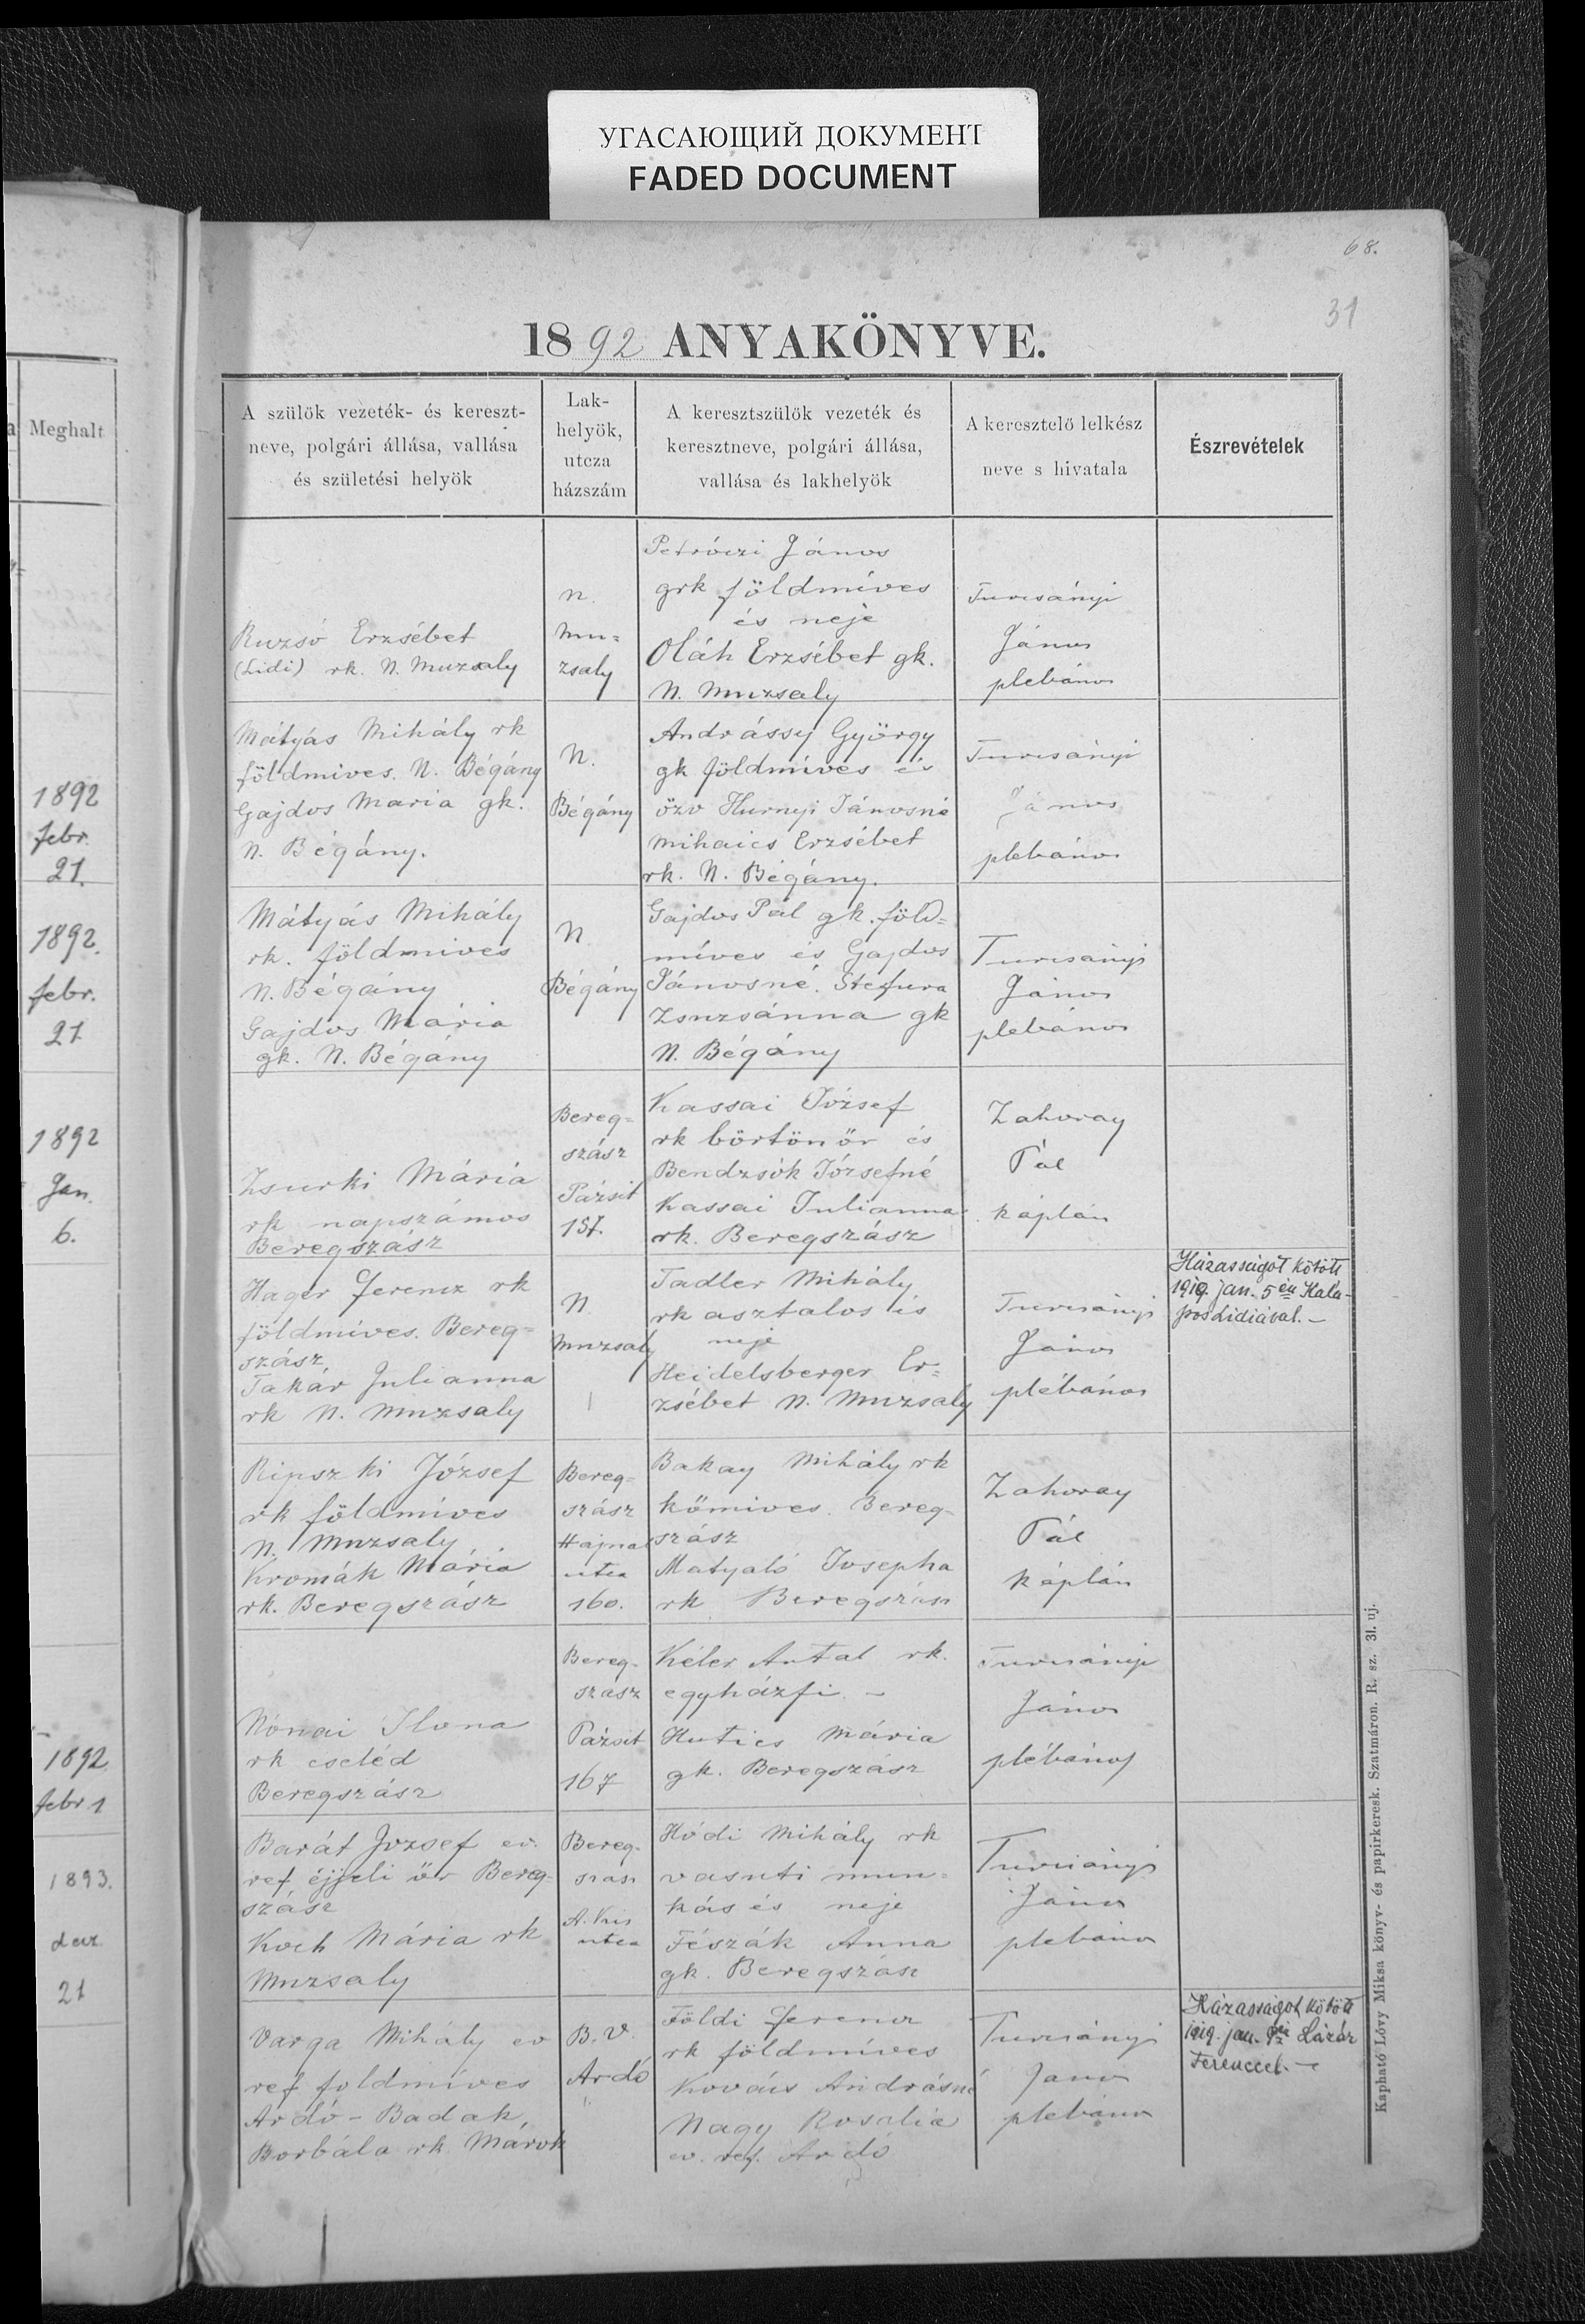 УГАСАЮЩИЙ ДОКУМЕНТ
FADED DOCUMENT
68.
31
1892 ANYAKÖNYVE.
Meghalt
1892
febr.
21.
1892.
febr.
21
1892
Jan.
6.
1892
febr 1
1893.
decz
21
A szülök vezeték- és kereszt-
neve, polgári állása, vallása
és születési helyök
Lak-
helyök,
utcza
házszám
A keresztszülök vezeték és
keresztneve, polgári állása,
vallása és lakhelyök
A keresztelő lelkész
neve s hivatala
Észrevételek
Ruzsó Erzsébet
(Lidi) rk. N. Muzsaly
N.
Mu=
zsaly
Petróczi János
grk földmíves
és neje
Oláh Erzsébet gk.
N. Muzsaly
Turcsányi
János
plebános
Mátyás Mihály rk
földmives. N. Bégány
Gajdos Maria gk.
N. Bégány.
N.
Bégány
Andrássy György
gk földmíves és
özv Hurnyi Jánosné
Mihaics Erzsébet
rk. N. Bégány.
Turcsányi
János
plebános
Mátyás Mihály
rk. földmives
N. Bégány
Gajdos Mária
gk. N. Bégány
N.
Bégány
Gajdos Pál gk. föld=
míves és Gajdos
Jánosné. Stefura
Zsuzsánna gk
N. Bégány
Turcsányi
János
plebános
Zsurki Mária
rk napszámos
Beregszász
Bereg=
szász
Pázsit
157.
Kassai József
rk börtönőr és
Bendzsók Józsefné
Kassai Julianna
rk. Beregszász
Zahoray
Pál
káplán
Hager Ferencz rk
földmíves. Bereg=
szász,
Takár Julianna
rk N. Muzsaly
N.
Muzsaly
Tadler Mihály
rk asztalos és
neje
Heidelsberger Er=
zsébet N. Muzsaly
Turcsányi
János
plébános
Házasságot kötött
1919. jan. 5 én Kala-
pos Lidiával. –
Ripszki József
rk földmíves
N. Muzsaly
Kromák Mária
rk. Beregszász
Bereg=
szász
Hajnal
utca
160.
Bakay Mihály rk
kőmives. Bereg-
szász
Matyaló Josepha
rk Beregszász
Zahoray
Pál
káplán
Nónai Ilona
rk cseléd
Beregszász
Bereg-
szász
Pázsit
167
Kéler Antal rk.
egyházfi. –
Hutics Mária
gk. Beregszász
Turcsányi
János
plébános
Barát József ev.
ref éjjeli őr Bereg=
szász
Koch Mária rk
Muzsaly
Bereg-
szász
A. Kis
utca
Hódi Mihály rk
vasuti mun=
kás és neje
Fészák Anna
gk. Beregszász
Turcsányi
János
plebános
Varga Mihály ev
ref földmíves
Ardó - Badak,
Borbála rk Márok
B. V.
Ardó
Földi Ferencz
rk földmíves
Kovács Andrásné
Nagy Rosalia
ev. ref. Ardó
Turcsányi
János
plebános
Házasságot kötött
1919. jan. Lázár
Ferenccel. –
Kapható Lővy Miksa könyv- és papirkeresk. Szatmáron. R. sz. 31. uj.